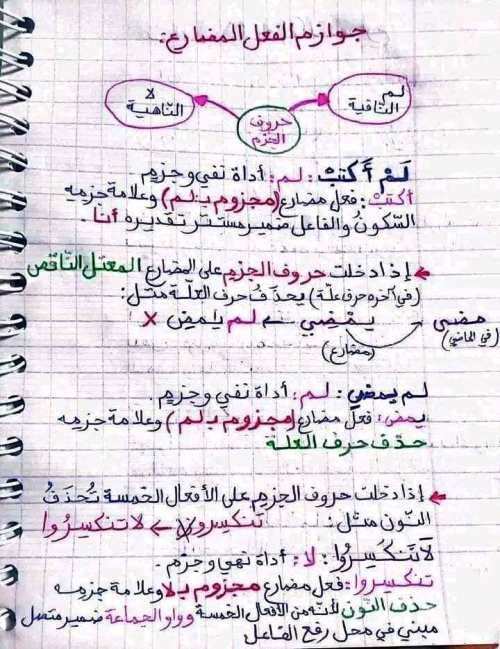 جوازم الفعل المضارع:
لم النّافية
لا النّاهية
حروف الجزم
لَمْ أَكتبْ: لم: أداة نفي وجزم
أكتبْ: فعل مضارع (مجزوم بـ لم) وعلامة جزمه
السّكونُ والفاعل ضمير مستتر تقديره أنا.
← إذا دخلت حروف الجزم على المضارع المعتل النّاقص
(في آخره حرف علّة) يحذفُ حرف العلّة مثل:
مضى يمضي ← لم يمضِ x
(في الماضي)
(مضارع)
لم يمضي: لم: أداة نفي وجزم.
يمضي: فعل مضارع (مجزوم بـ لم) وعلامة جزمه
حذف حرف العلة
← إذا دخلت حروف الجزم على الأفعال الخمسة تُحذفُ
النّون مثل: تنكسرون ← لا تنكسرُوا
لَا تَنكَسِرُوا: لا: أداة نهي وجزم.
تنكسروا: فعل مضارع مجزوم بـ لا وعلامة جزمه
حذف النّون لأنّه من الأفعال الخمسة وواو الجماعة ضمير متصل
مبني في محل رفع الفاعل.